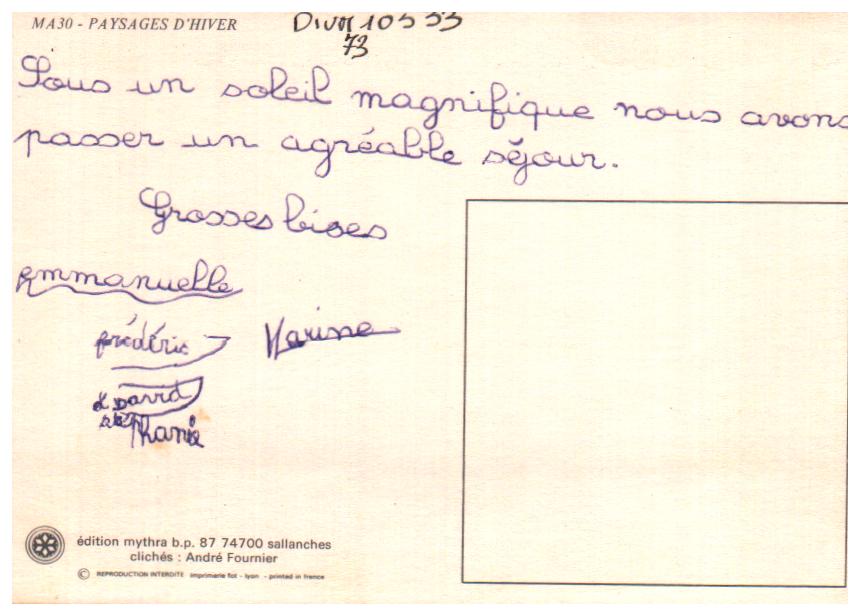 MA30 - PAYSAGES D'HIVER
73
Sous un soleil magnifique nous avons
passer un agréable séjour.
Grosses bises
emmanuelle
frédéric
Karine
David
édition mythra b.p. 87 74700 sallanches
clichés : André Fournier
© REPRODUCTION INTERDITE imprimerie fot - lyon - printed in france